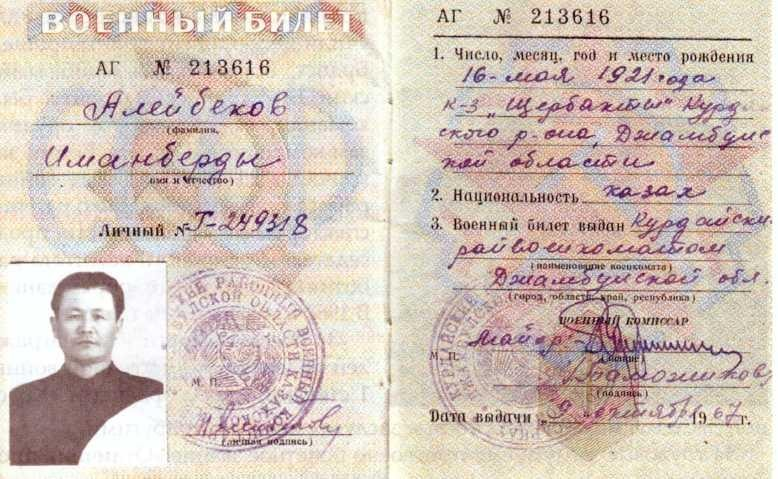 ВОЕННЫЙ БИЛЕТ
АГ № 213616
Алейбеков
(фамилия,
Иманберды
имя и отчество)
Личный № Т-249318
М. П.
(личная подпись)
АГ № 213616
1. Число, месяц, год и место рождения
16-мая 1921 года
к-з "Щербакты" Курд
ского р-она, Джамбулс
кой области
2. Национальность казах
3. Военный билет выдан Курдайски
райвоенкоматом
(наименование военкомата)
Джамбулской обл.
(город, область, край, республика)
ВОЕННЫЙ КОМИССАР
майор
М. П.
(звание)
(подпись)
Дата выдачи „9" октября 1967 г.